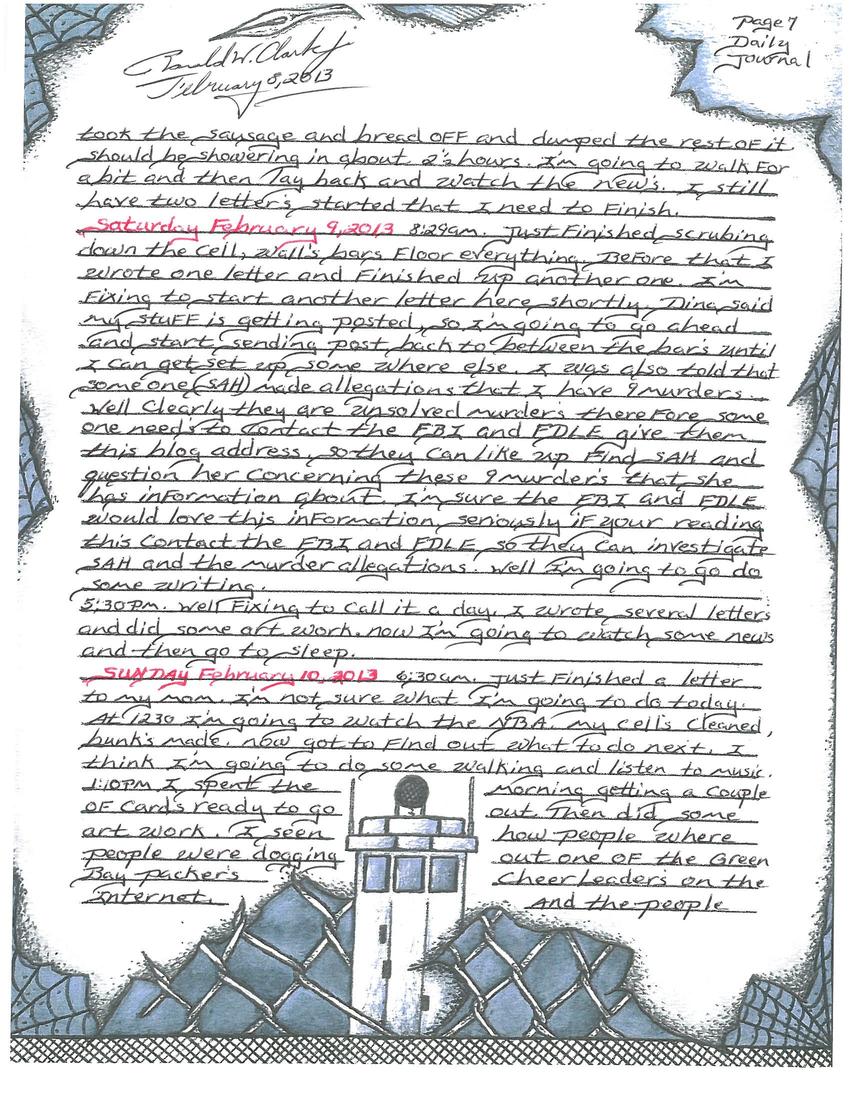 Ronald W. Clark Jr
February 8, 2013
Page 7
Daily
Journal
took the sausage and bread off and dumped the rest of it
should be showering in about 2½ hours. I'm going to walk for
a bit and then lay back and watch the new's. I still
have two letter's started that I need to finish.
Saturday February 9, 2013 8:29am. Just finished scrubing
down the cell, wall's bars floor everything. Before that I
wrote one letter and finished up another one. I'm
fixing to start another letter here shortly. Dina said
my stuff is getting posted, so I'm going to go ahead
and start sending post back to between the bar's until
I can get set up some where else. I was also told that
someone (SAH) made allegations that I have 9 murders.
Well clearly they are unsolved murders therefore some
one need's to contact the FBI and FDLE give them
this blog address, so they can like up find SAH and
question her concerning these 9 murder's that she
has information about. I'm sure the FBI and FDLE
would love this information, seriously if your reading
this contact the FBI and FDLE so they can investigate
SAH and the murder allegations. Well I'm going to go do
some writing.
5:30pm. Well fixing to call it a day. I wrote several letters
and did some art work. now I'm going to watch some news
and then go to sleep.
SUNDAY February 10, 2013 6:30am. Just finished a letter
to my mom. I'm not sure what I'm going to do today.
At 1230 I'm going to watch the NBA. my cell's cleaned,
bunk's made. now got to find out what to do next. I
think I'm going to do some walking and listen to music.
1:10pm I spent the morning getting a couple
of cards ready to go out. Then did some
art work. I seen how people where
people were dogging out one of the Green
Bay packer's cheerleaders on the
Internet. And the people